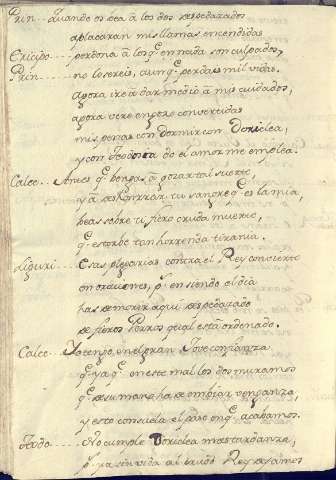 Prin.... quando os vea a los dos despedaçados
aplacaran mis llamas encendidas
perdona a los q̃ en nada son culpados,
Prin.... no lo sereis, aunq̃ perdais mil vidas.
agora ire a dar medio a mis cuidados,
agora vere en gozo convertidas
mis penas con dormir con Doriclea,
y con do el amor me emplea.
Calce.... Antes q̃ vengas a gozar tal suerte,
y a deshonrrar tu sangre q̃ es la mia,
veas sobre ti fiero cruda muerte,
q̃ estorbe tan horrenda tirania.
Liguri.... Esas plegarias contra el Rey convierte
en oraciones, q̃ en siendo el dia
has de morir aqui despedaçado
de fieros Perros qual està ordenado.
Calce.... Yo tengo en el gran Jove confiança
q̃ ya q̃ en este mal los dos muramos
q̃ de su mano ha de embiar vengança,
y esto consuela el en q̃ acabamos.
No cumple Doriclea mas tardança,
q̃ ya sin vida al crudo Rey veamos